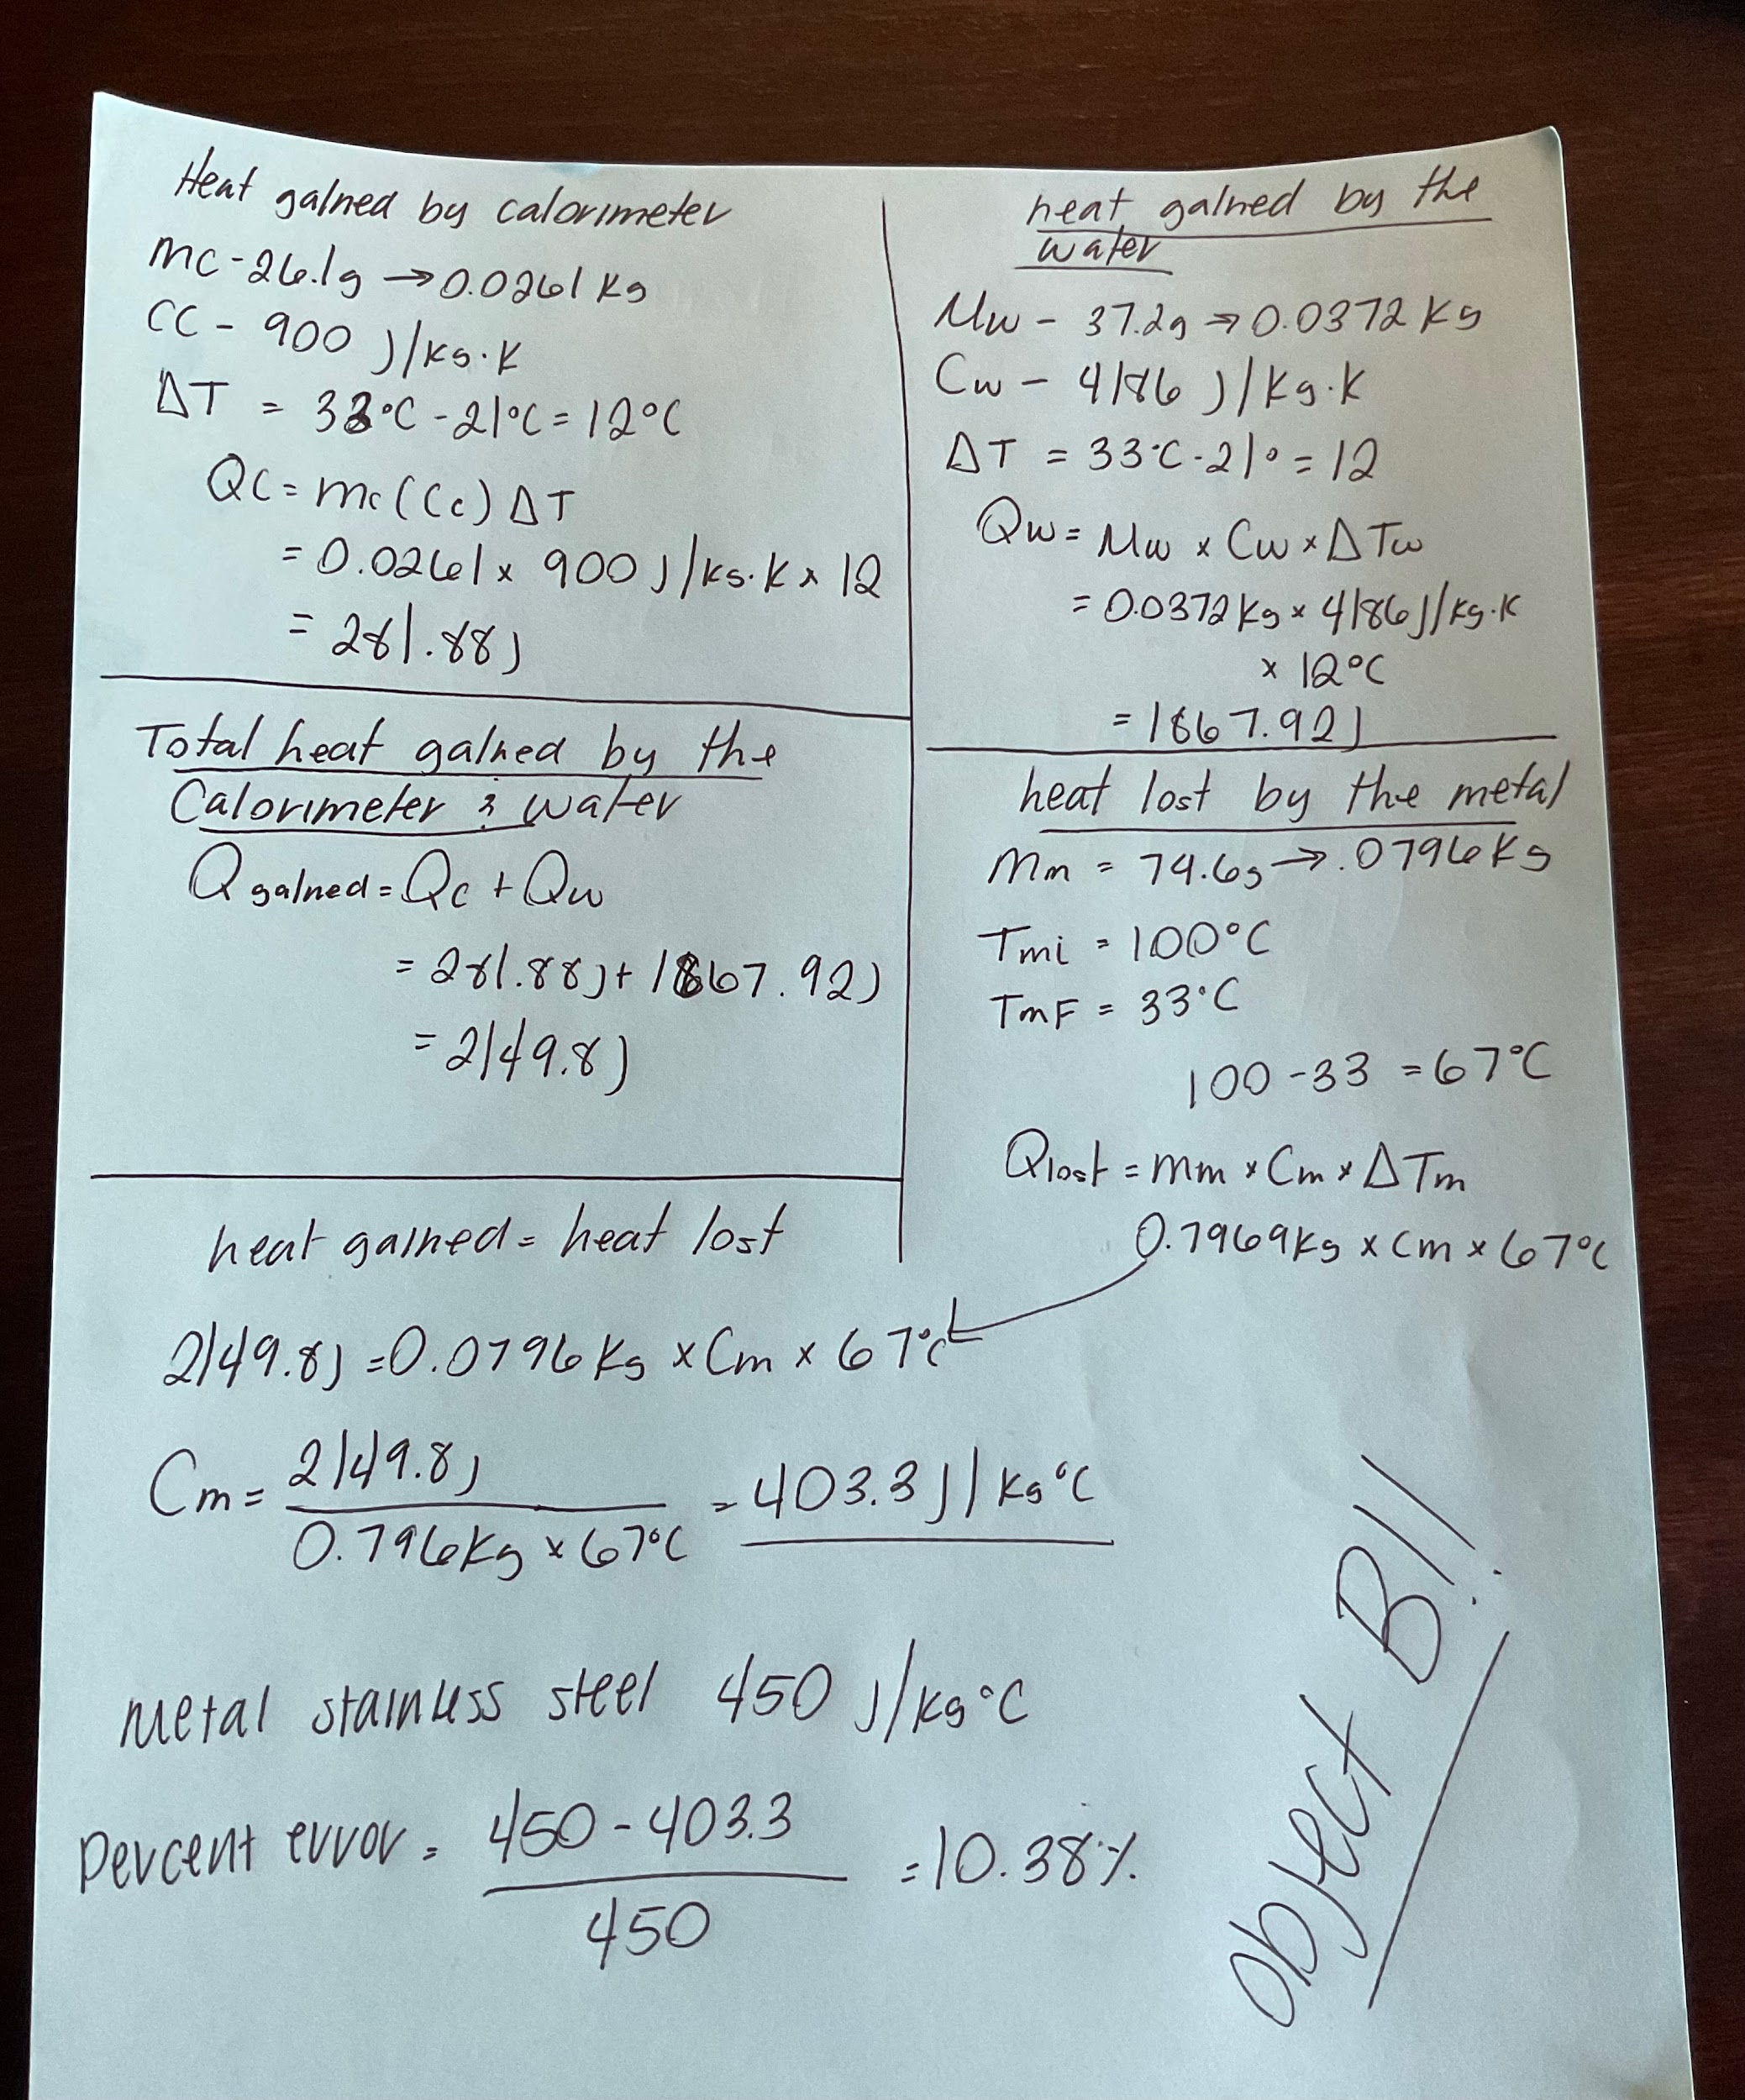 Heat gained by calorimeter
mc - 26.1g → 0.0261 kg
CC - 900 J/kg·K
ΔT = 33°C - 21°C = 12°C
QC = mc (Cc) ΔT
= 0.0261 x 900 J/kg·K x 12
= 281.88 J
heat gained by the
water
Mw - 37.2g → 0.0372 kg
Cw - 4186 J/kg·K
ΔT = 33°C - 21° = 12
Qw = Mw x Cw x ΔTw
= 0.0372 kg x 4186 J/kg·K
x 12°C
= 1867.92 J
Total heat gained by the
Calorimeter & water
Q gained = Qc + Qw
= 281.88 J + 1867.92 J
= 2149.8 J
heat lost by the metal
Mm = 79.6g → .0796 kg
Tmi = 100°C
TmF = 33°C
100 - 33 = 67°C
Qlost = mm x Cm x ΔTm
0.7969kg x Cm x 67°C
heat gained = heat lost
2149.8 J = 0.0796 kg x Cm x 67°C
Cm = 2149.8 J
0.796kg x 67°C
= 403.3 J/kg°C
Metal stainless steel 450 J/kg°C
Percent error = 450 - 403.3
450
= 10.38%
object B!!